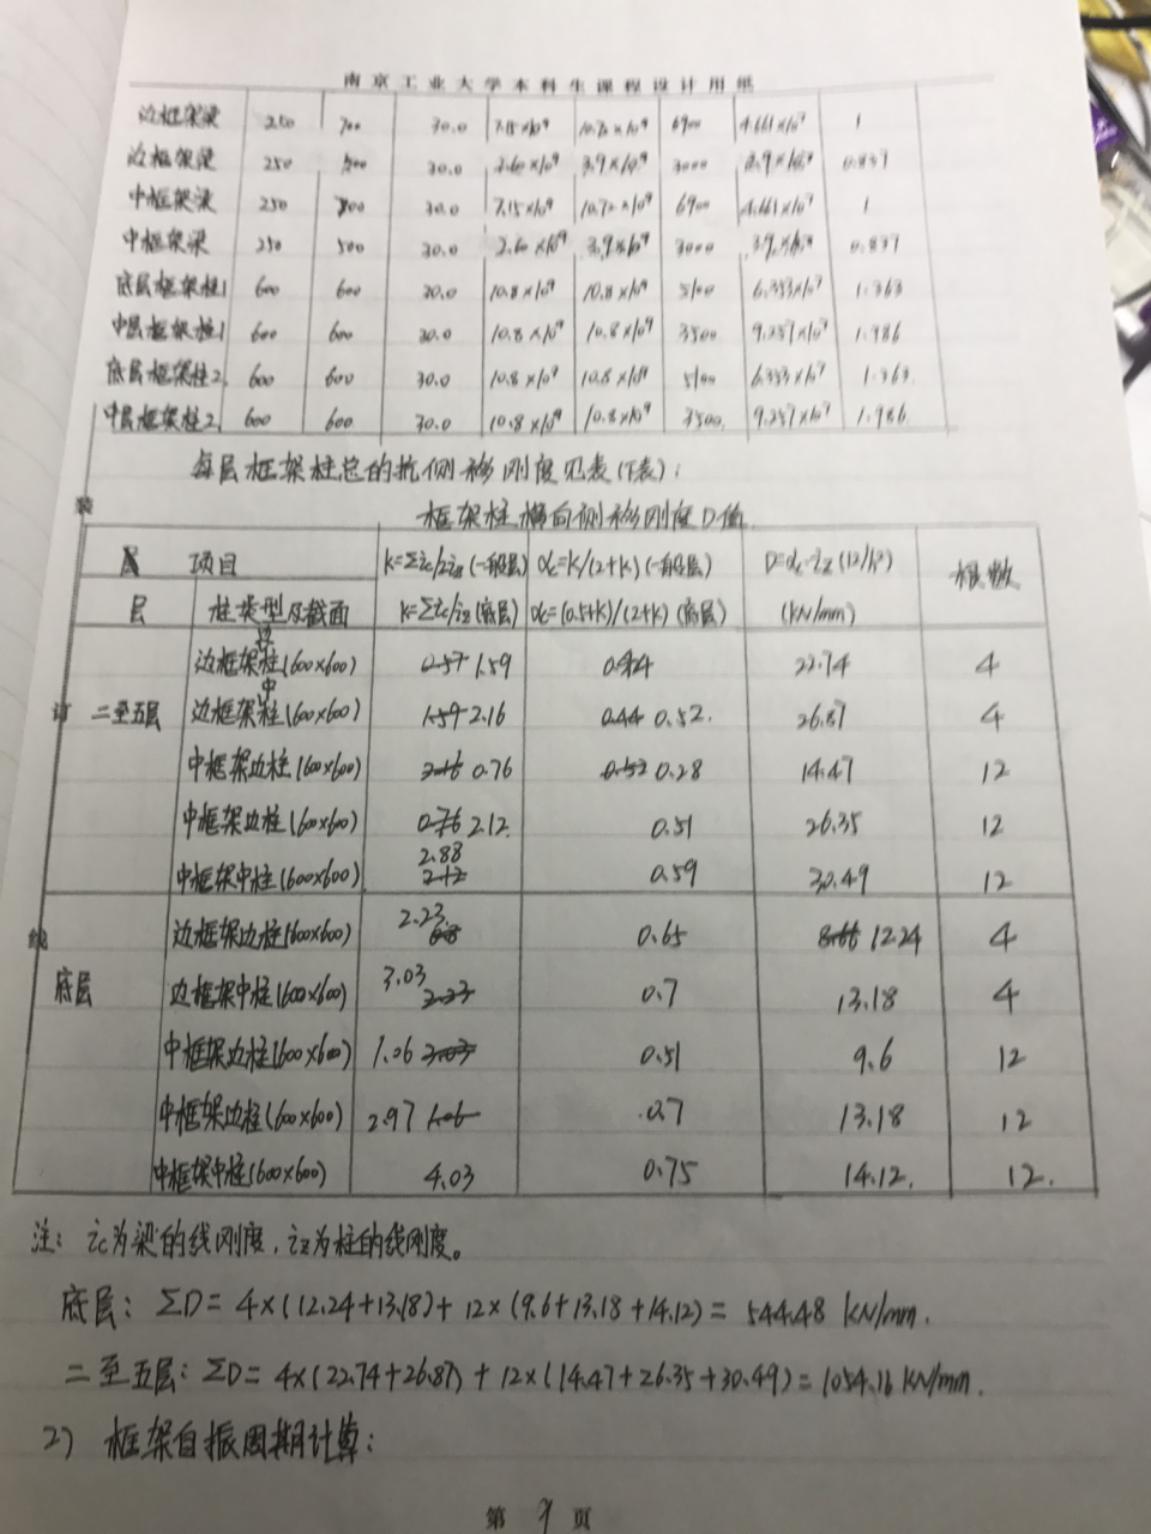 南京工业大学本科生课程设计用纸
边框架梁 250 700 30.0 7.15×10⁹ 10.72×10⁹ 6900 4.661×10⁷ 1
边框架梁 250 500 30.0 2.60×10⁹ 3.9×10⁹ 3000 3.9×10⁷ 0.837
中框架梁 250 700 30.0 7.15×10⁹ 10.72×10⁹ 6900 4.661×10⁷ 1
中框架梁 250 500 30.0 2.60×10⁹ 3.9×10⁹ 3000 3.9×10⁷ 0.837
底层框架柱1 600 600 30.0 10.8×10⁹ 10.8×10⁹ 5100 6.353×10⁷ 1.363
中层框架柱1 600 600 30.0 10.8×10⁹ 10.8×10⁹ 3500 9.257×10⁷ 1.986
底层框架柱2 600 600 30.0 10.8×10⁹ 10.8×10⁹ 5100 6.353×10⁷ 1.363
中层框架柱2 600 600 30.0 10.8×10⁹ 10.8×10⁹ 3500 9.257×10⁷ 1.986
每层框架柱总的抗侧移刚度见表(下表):
装
框架柱横向侧移刚度D值
项目 k=Σic/2iz(一般层) αc=k/(2+k)(一般层) D=αc·iz(12/h²) 根数
层 柱类型及截面 k=Σic/iz(底层) αc=(0.5+k)/(2+k)(底层) (kN/mm)
边框架边柱(600×600) 0.57 1.59 0.44 22.74 4
订 二至五层 边框架中柱(600×600) 1.59 2.16 0.44 0.52. 26.87 4
中框架边柱(600×600) 2.16 0.76 0.52 0.28 14.47 12
中框架边柱(600×600) 0.76 2.12. 0.51 26.35 12
中框架中柱(600×600) 2.88 2.12 0.59 30.49 12
线 边框架边柱(600×600) 2.23 0.65 8.66 12.24 4
底层 边框架中柱(600×600) 3.03 2.23 0.7 13.18 4
中框架边柱(600×600) 1.06 3.03 0.51 9.6 12
中框架边柱(600×600) 2.97 1.06 0.7 13.18 12
中框架中柱(600×600) 4.03 0.75 14.12. 12.
注: ic为梁的线刚度,iz为柱的线刚度。
底层: ΣD=4×(12.24+13.18)+12×(9.6+13.18+14.12)=544.48 kN/mm.
二至五层: ΣD=4×(22.74+26.87)+12×(14.47+26.35+30.49)=1054.16 kN/mm.
2) 框架自振周期计算:
第 9 页